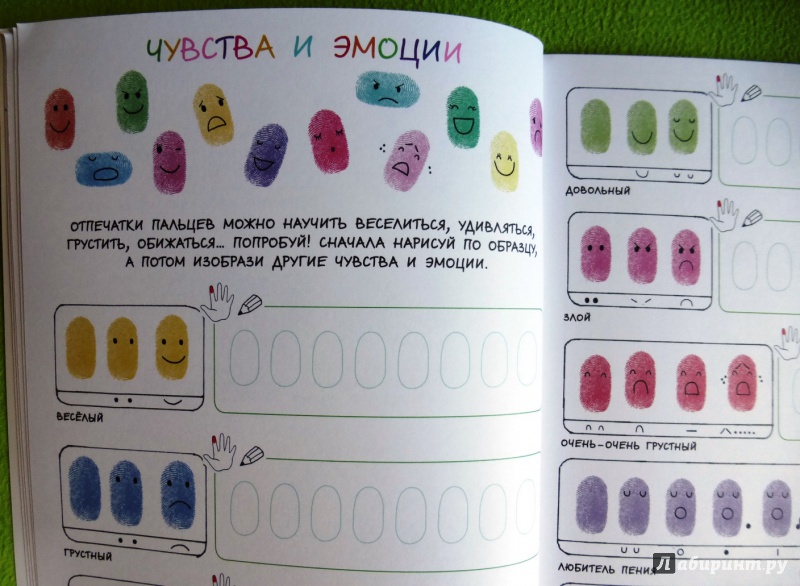 ЧУВСТВА И ЭМОЦИИ
ОТПЕЧАТКИ ПАЛЬЦЕВ МОЖНО НАУЧИТЬ ВЕСЕЛИТЬСЯ, УДИВЛЯТЬСЯ,
ГРУСТИТЬ, ОБИЖАТЬСЯ... ПОПРОБУЙ! СНАЧАЛА НАРИСУЙ ПО ОБРАЗЦУ,
А ПОТОМ ИЗОБРАЗИ ДРУГИЕ ЧУВСТВА И ЭМОЦИИ.
ВЕСЁЛЫЙ
ГРУСТНЫЙ
ДОВОЛЬНЫЙ
ЗЛОЙ
ОЧЕНЬ-ОЧЕНЬ ГРУСТНЫЙ
ЛЮБИТЕЛЬ ПЕНИЯ
Лабиринт.ру